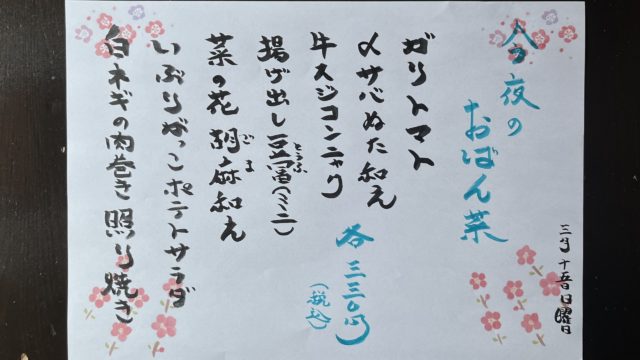 今夜の
おばん菜
三月十五日日曜日
ガリトマト
〆サバぬた和え
牛スジコンニャク
揚げ出し豆富(ミニ)
とうふ
菜の花胡麻和え
ごま
いぶりがっこポテトサラダ
白ネギの肉巻き照り焼き
各三三〇円
(税込)